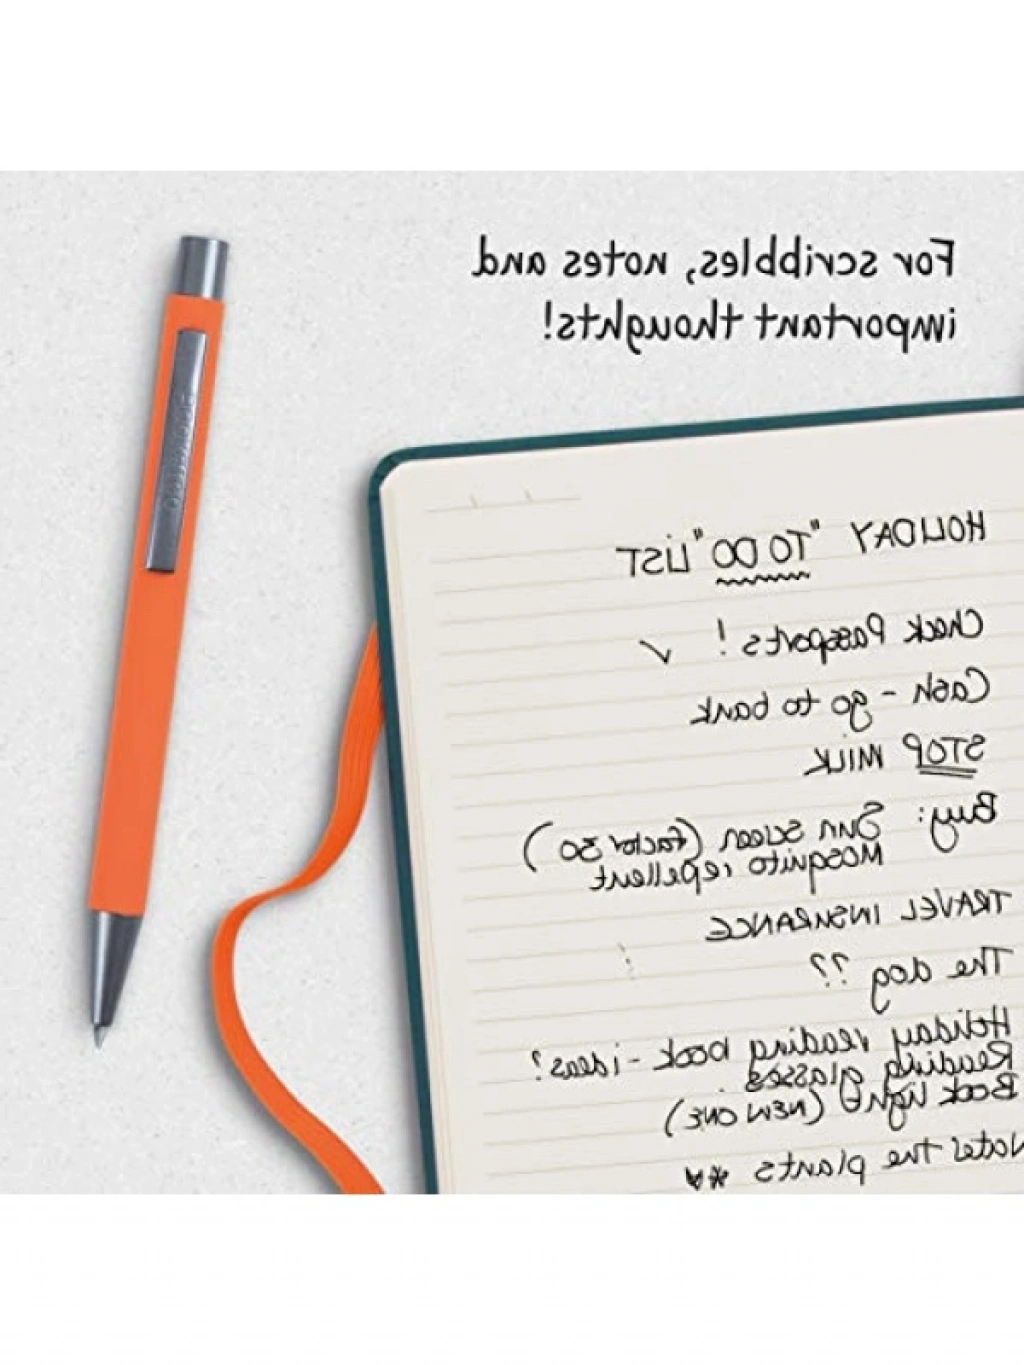 For scribbles, notes and
important thoughts!
HOLIDAY "TO DO" LIST
Check Passports ! ✓
Cash - go to bank
STOP MILK
Buy: Sun screen (factor 30)
Mosquito repellent
TRAVEL INSURANCE
The dog ??
Holiday reading book - ideas?
Reading glasses
Book light (NEW ONE)
Water the plants **